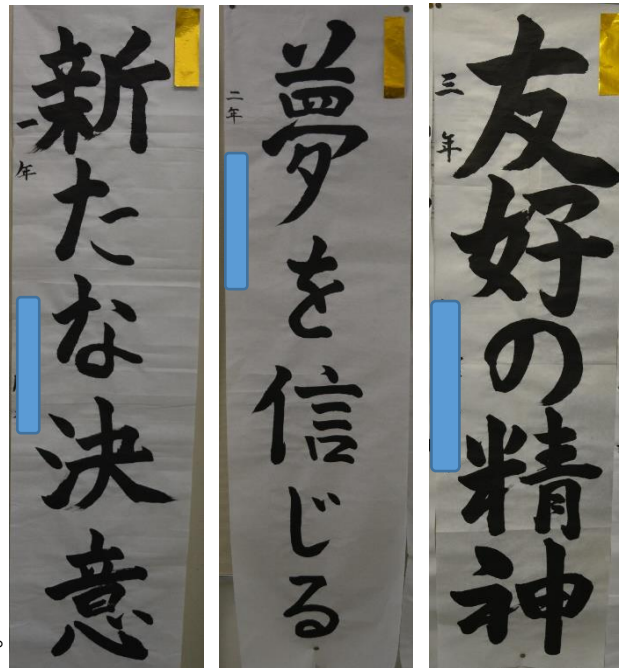 新たな決意
一年
夢を信じる
二年
友好の精神
三年
。